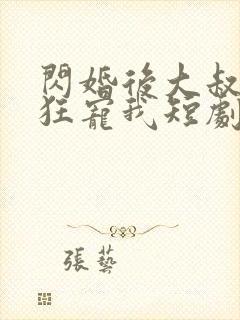 閃婚後大叔
狂寵我短劇
張藝